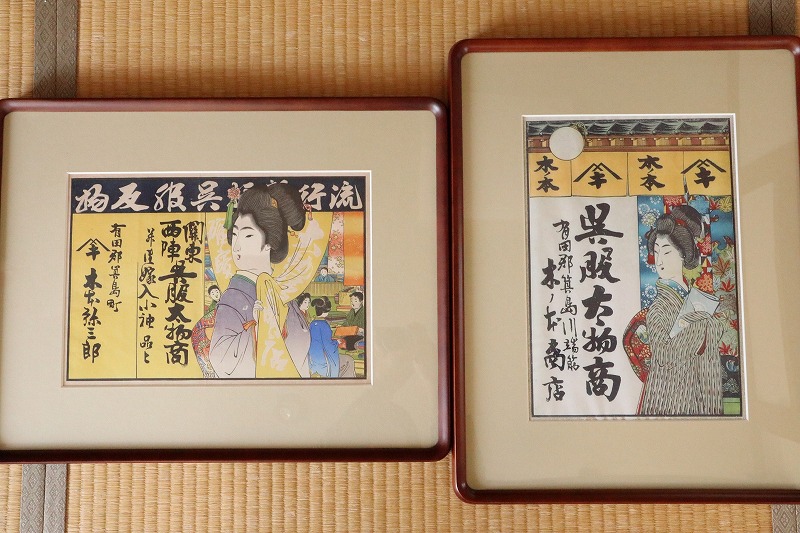 流行
呉服反物
關東
西陣
呉服太物商
嫁入小袖品々
有田郡箕島町
木本弥三郎
キ
木本
キ
木本
呉服太物商
有田郡箕島川端筋
木ノ本商店